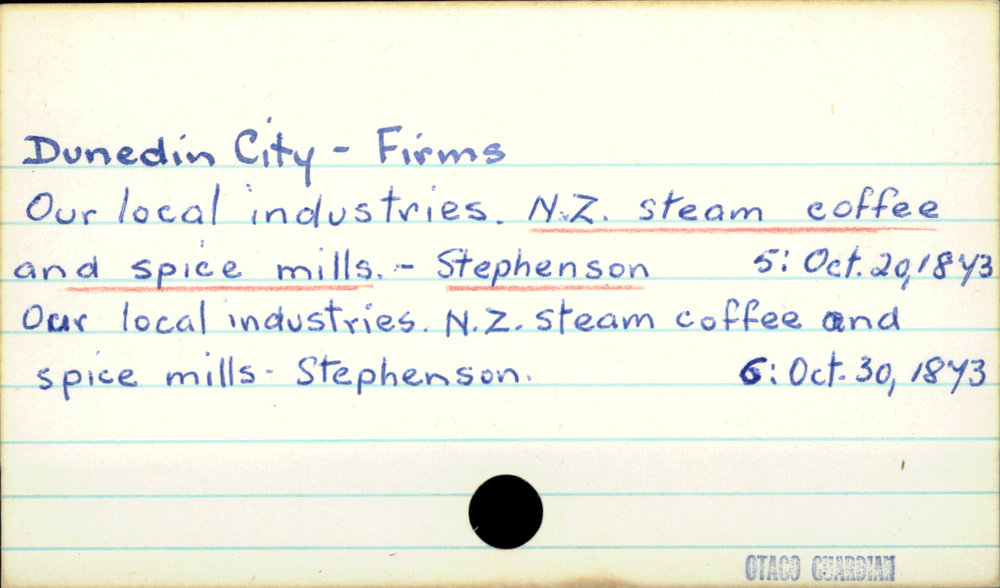 Dunedin City - Firms
Our local industries. N.Z. steam coffee
and spice mills. - Stephenson 5: Oct. 20, 1873
Our local industries. N.Z. steam coffee and
spice mills - Stephenson. 6: Oct. 30, 1873
OTAGO GUARDIAN